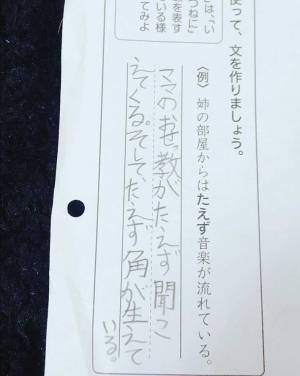 使って、文を作りましょう。
〈例〉姉の部屋からはたえず音楽が流れている。
ママのおせっ教がたえず聞こ
えてくる。そして、たえず角が生えて
いる。
は、「い
つねに」
を表す
いる様
てみよ